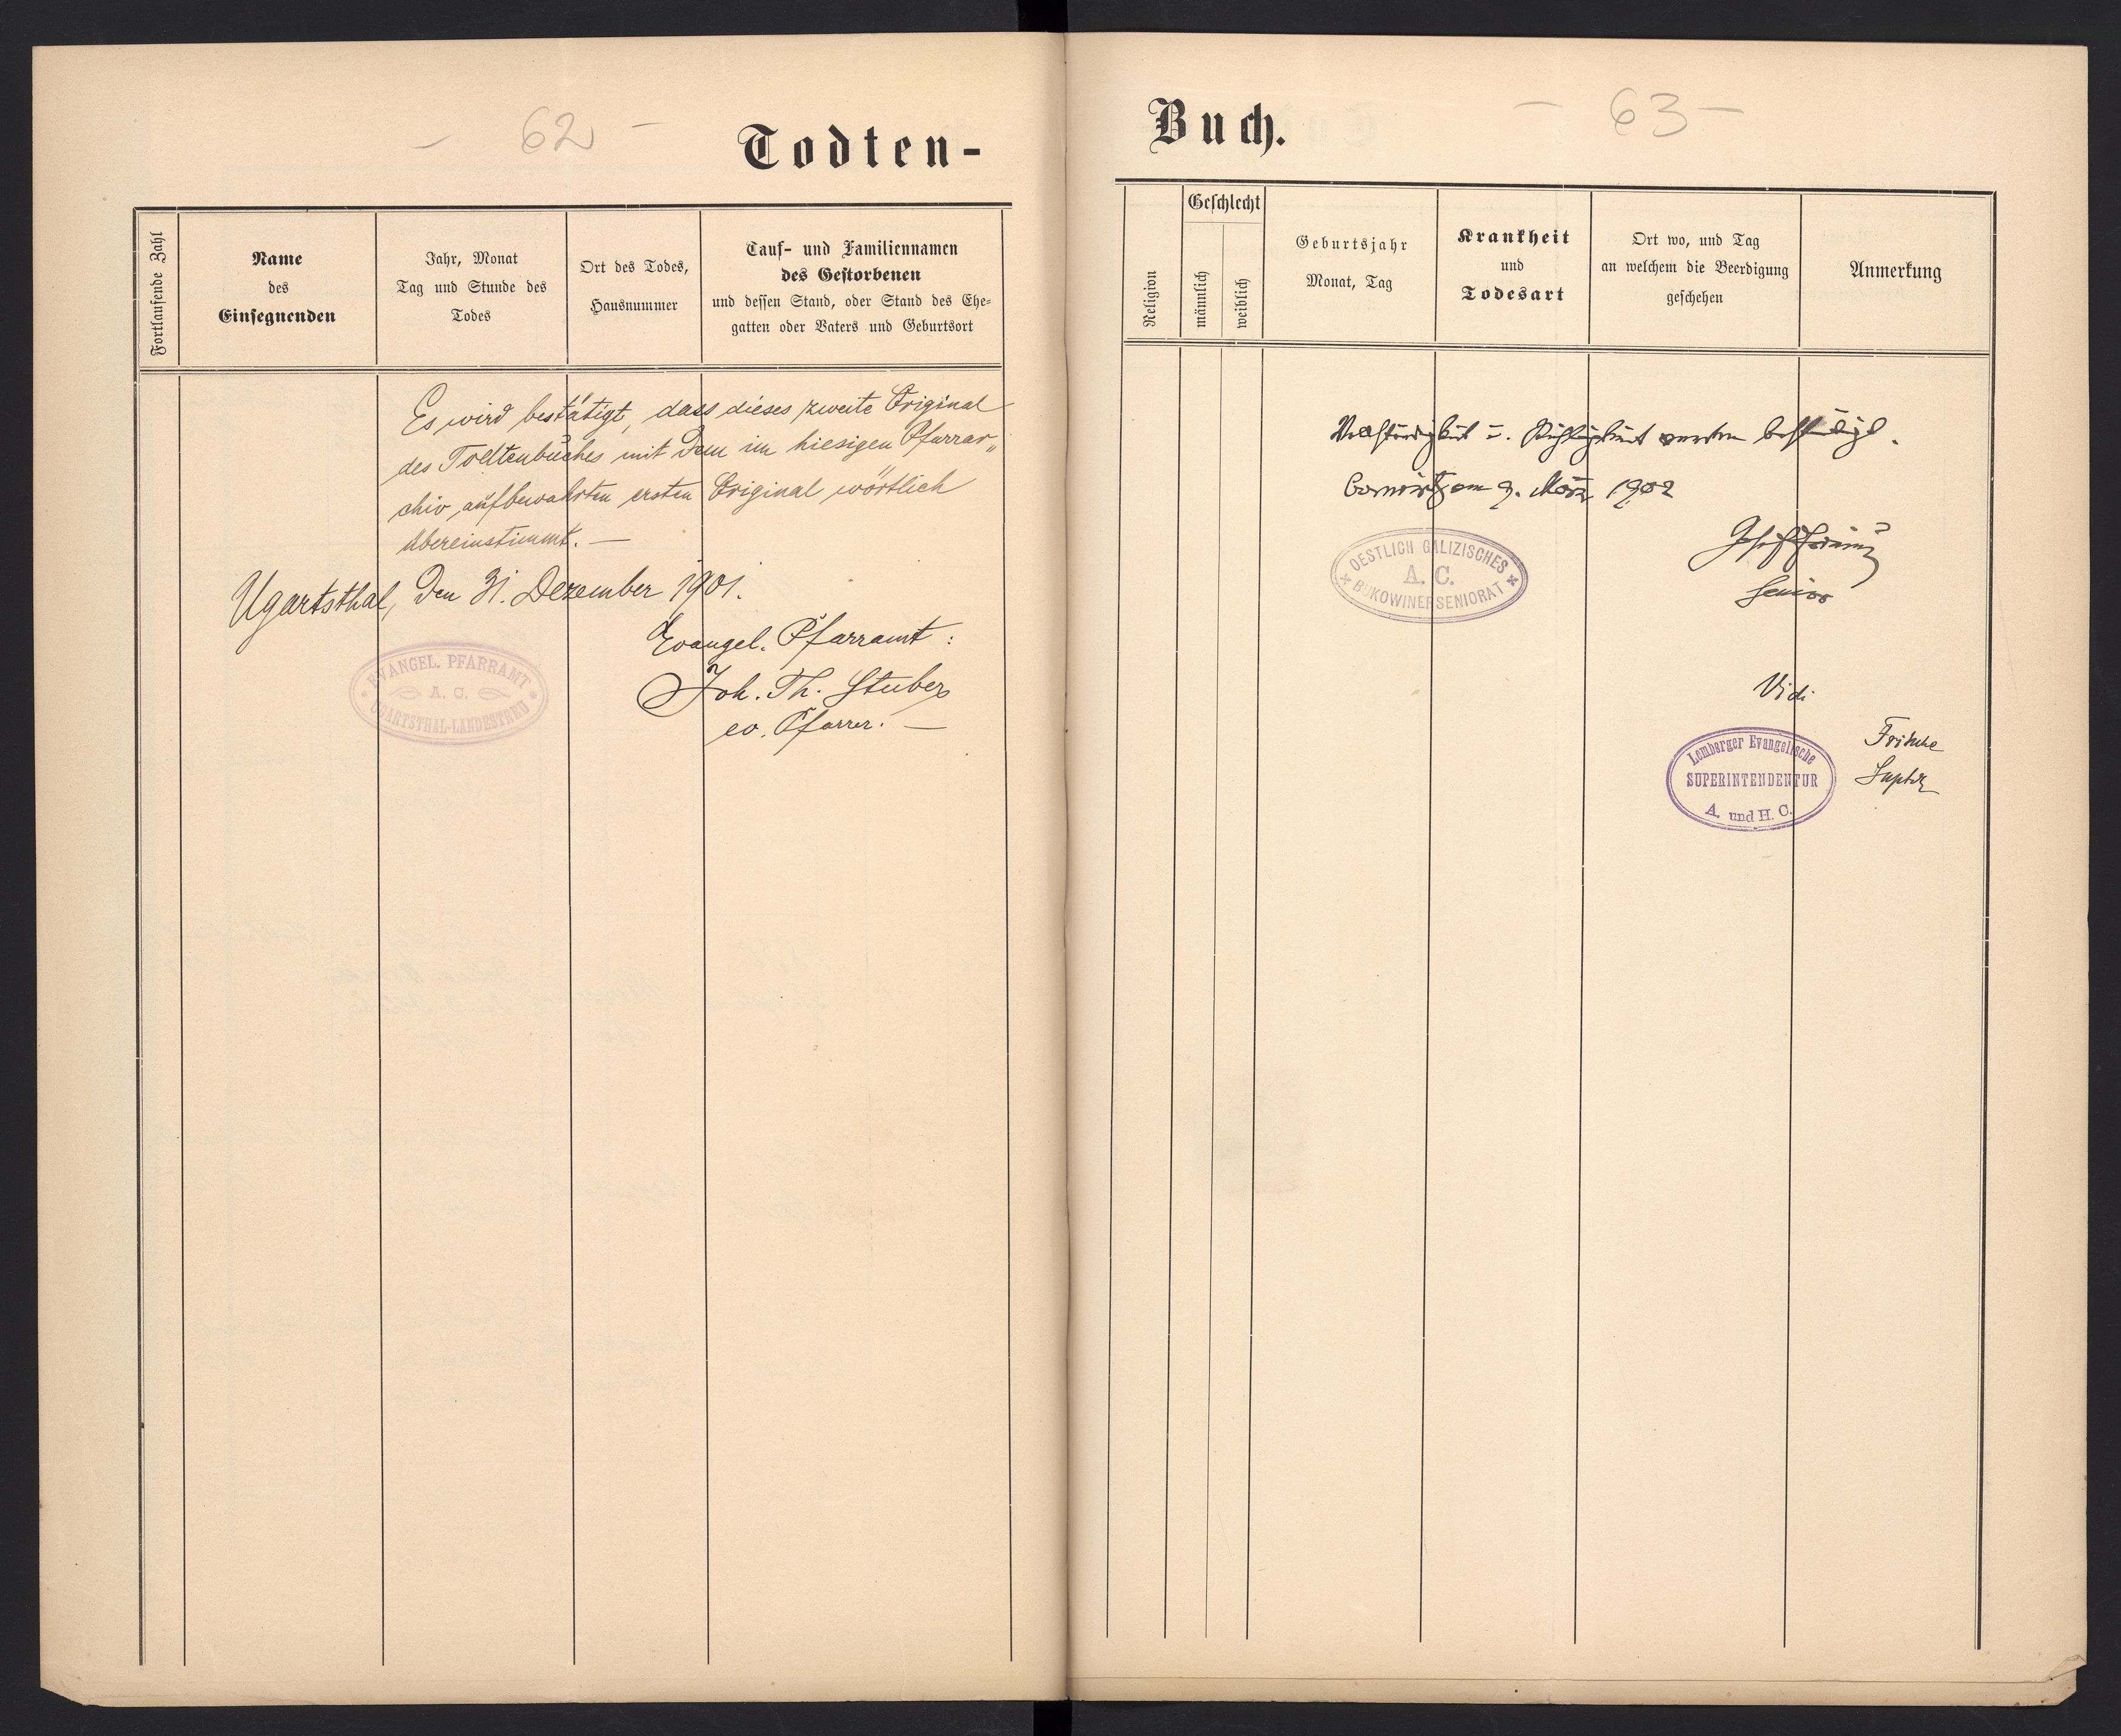 - 62 -
Todten-
Fortlaufende Zahl
Name
des
Einsegnenden
Jahr, Monat
Tag und Stunde des
Todes
Ort des Todes,
Hausnummer
Tauf- und Familiennamen
des Gestorbenen
und dessen Stand, oder Stand des Ehe-
gatten oder Vaters und Geburtsort
Es wird bestätigt, dass dieses zweite Original
des Todtenbuches mit dem im hiesigen Pfarrar„
chiv aufbewahrten ersten Original wörtlich
übereinstimmt. —
Ugartsthal, den 31. Dezember 1901.
Evangel. Pfarramt:
Joh. Th. Stuber
ev. Pfarrer. —
EVANGEL. PFARRAMT
A. C.
UGARTSTHAL-LANDESTREU
- 63 -
Buch.
Religion
Geschlecht
männlich
weiblich
Geburtsjahr
Monat, Tag
Krankheit
und
Todesart
Ort wo, und Tag
an welchem die Beerdigung
geschehen
Anmerkung
Vollständigkeit u. Richtigkeit werden bestätigt.
am 9. März 1902
Senior
OESTLICH GALIZISCHES
A. C.
BUKOWINER SENIORAT
Vidi
Fritsche
Suptdt
Lemberger Evangelische
SUPERINTENDENTUR
A. und H. C.